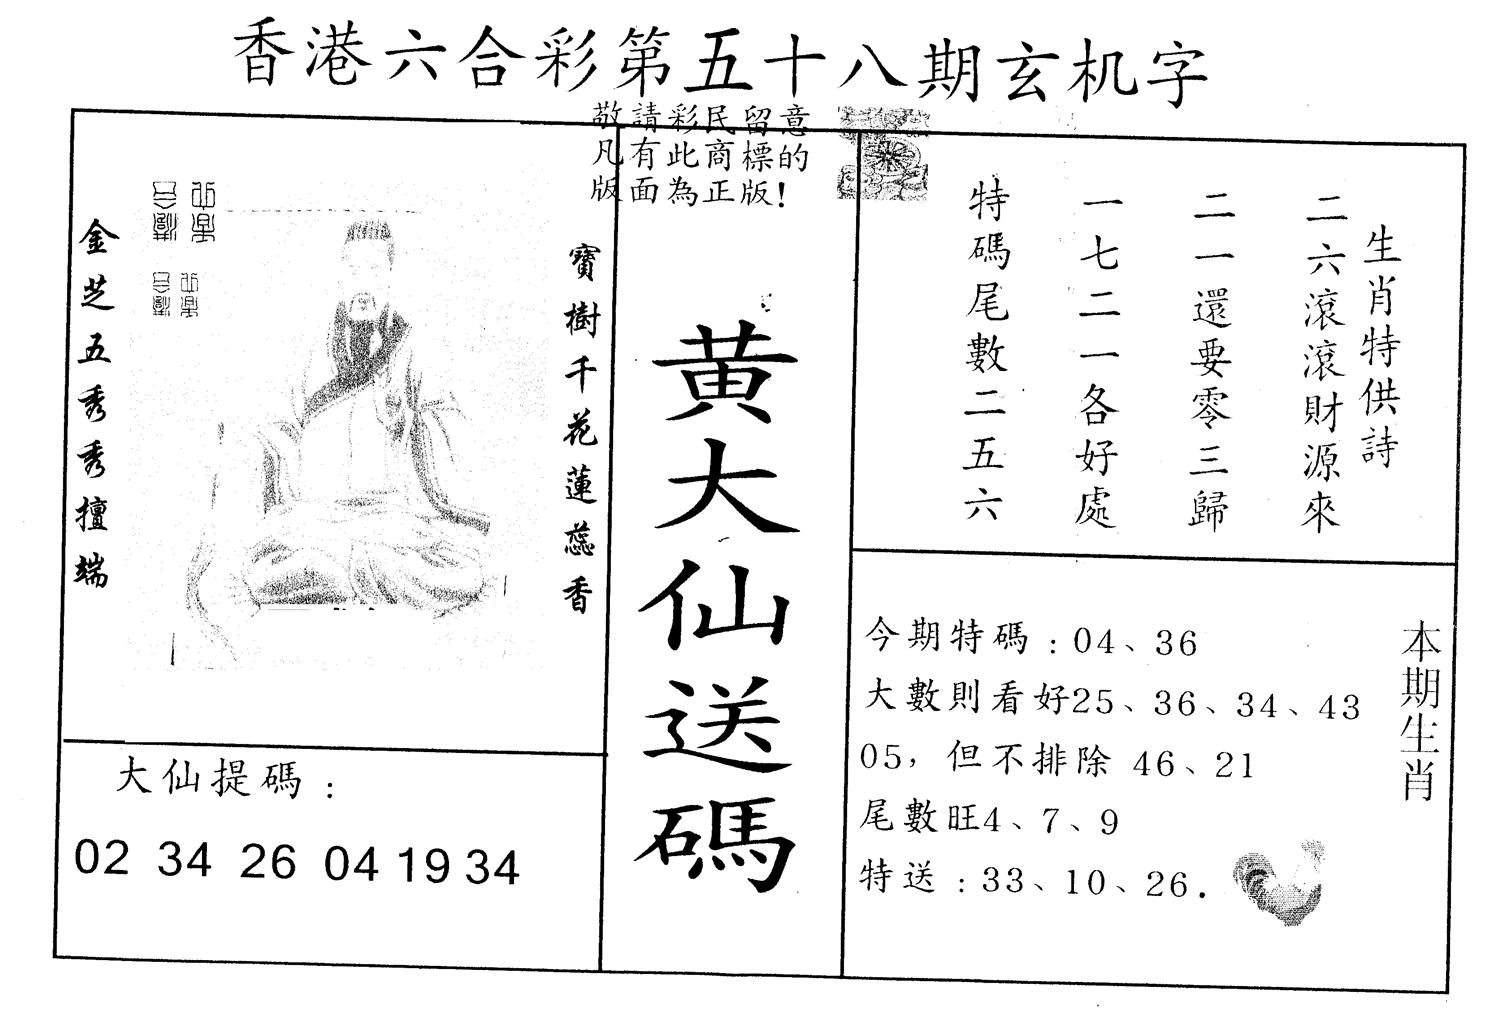 香港六合彩第五十八期玄机字
敬請彩民留意
凡有此商標的
版面為正版!
寶樹千花蓮蕊香
金芝五秀秀擅端
大仙提碼:
02 34 26 04 19 34
黄大仙送碼
生肖特供詩
二六滾滾財源來
二一還要零三歸
一七二一各好處
特碼尾數二五六
本期生肖
今期特碼:04、36
大數則看好25、36、34、43
05,但不排除 46、21
尾數旺4、7、9
特送:33、10、26.